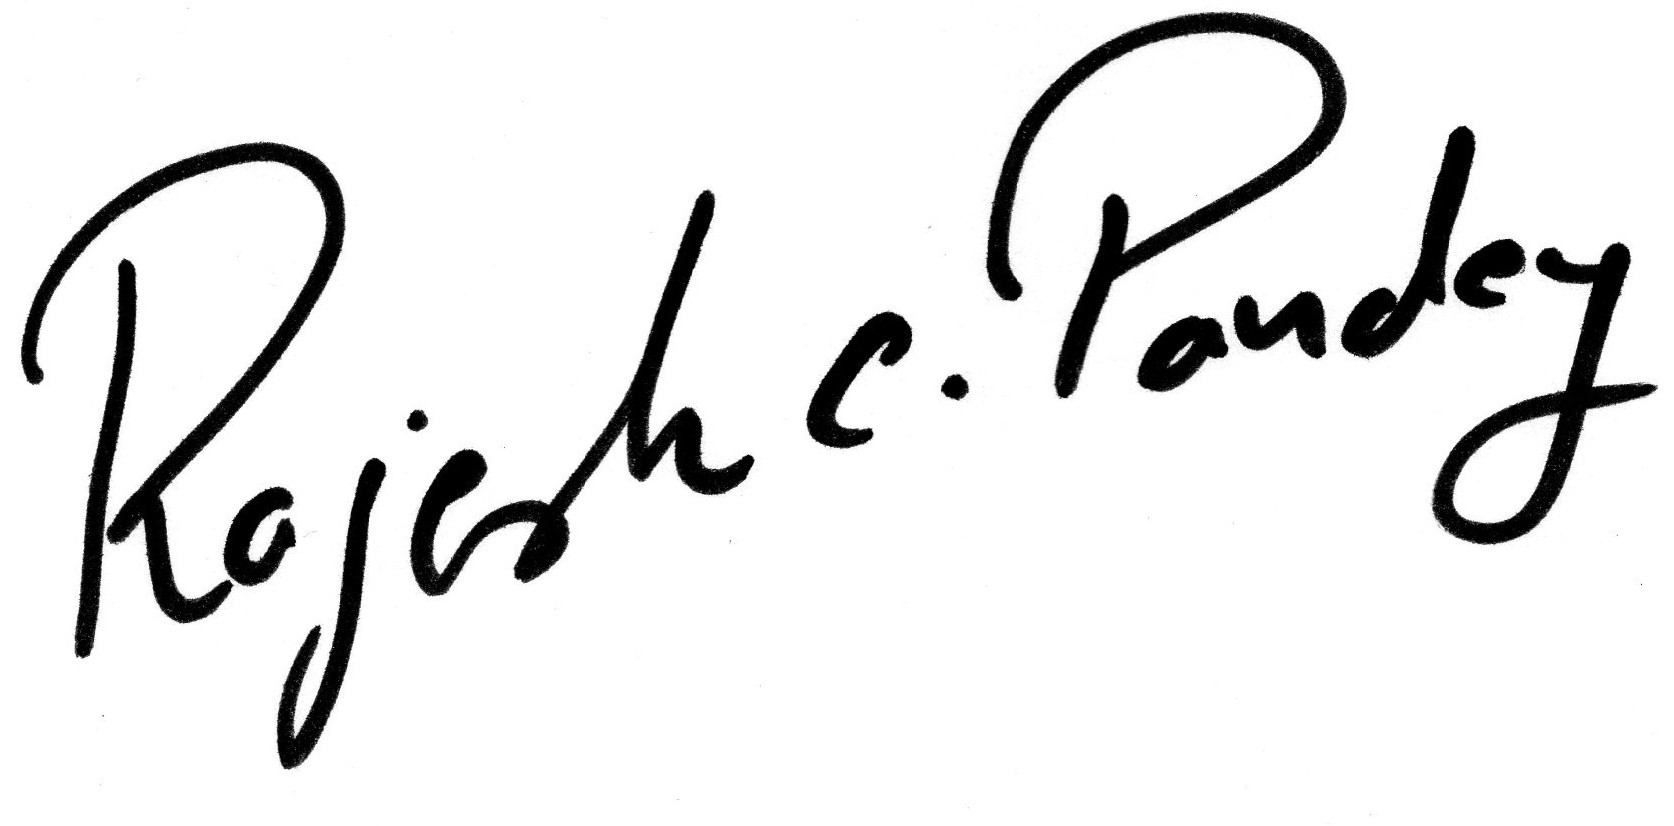 Rajesh C. Pandey